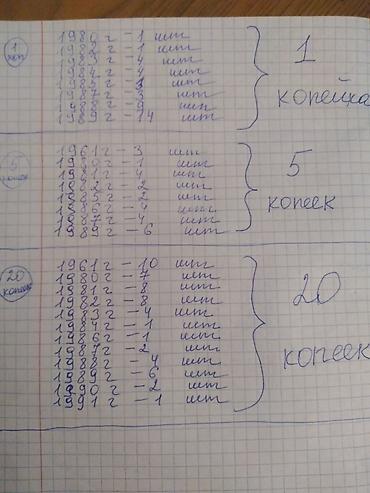 1 коп
1980 г - 1 шт
1982 г - 1 шт
1983 г - 4 шт
1984 г - 4 шт
1985 г - 1 шт
1987 г - 3 шт
1988 г - 9 шт
1989 г - 14 шт
1 копейка
5
1961 г - 3 шт
1980 г - 1 шт
1981 г - 4 шт
1982 г - 2 шт
1985 г - 2 шт
1986 г - шт
1987 г - 4 шт
1989 г - 6 шт
5 копеек
20 копеек
1961 г - 10 шт
1980 г - 7 шт
1981 г - 8 шт
1982 г - 8 шт
1983 г - 4 шт
1984 г - 1 шт
1986 г - 1 шт
1987 г - 2 шт
1988 г - 4 шт
1989 г - 6 шт
1990 г - 2 шт
1991 г - 1 шт
20 копеек